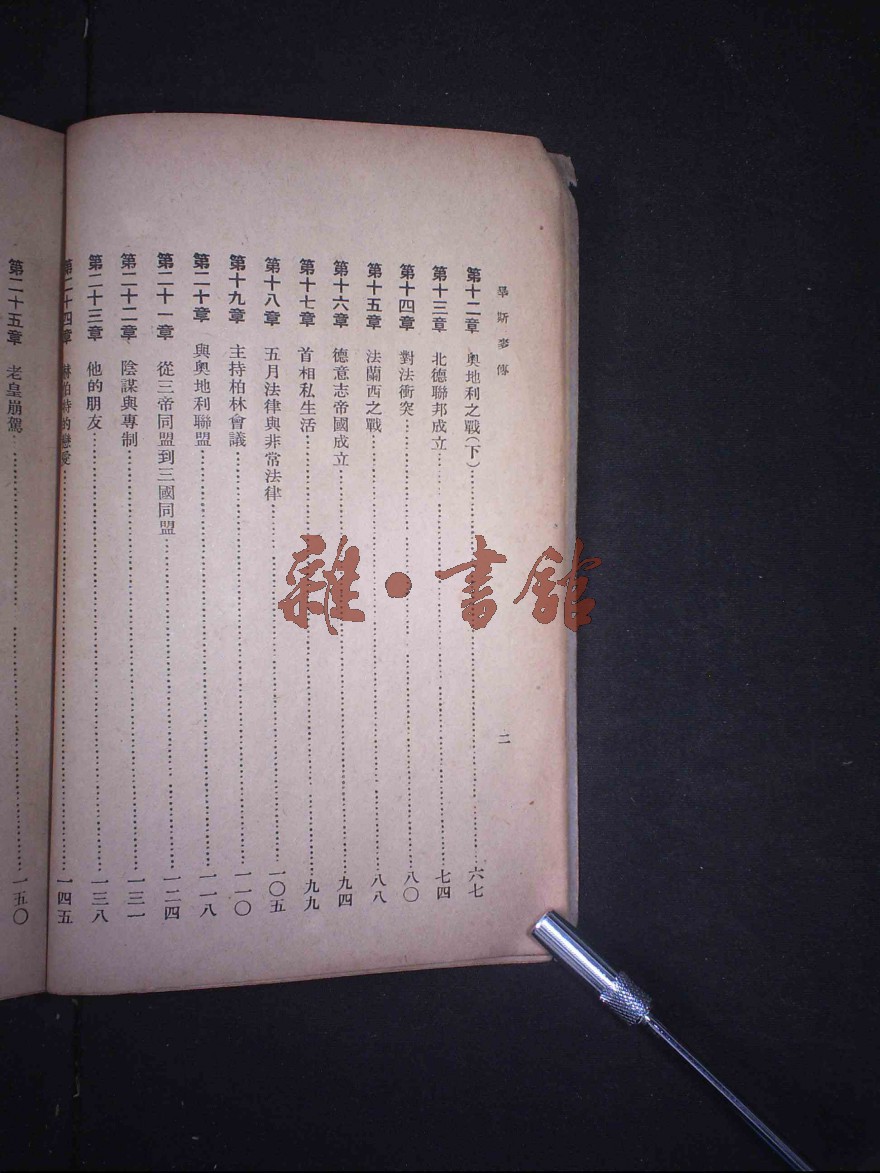 畢斯麥傳
二
第十二章 奧地利之戰(下)……六七
第十三章 北德聯邦成立……七四
第十四章 對法衝突……八〇
第十五章 法蘭西之戰……八八
第十六章 德意志帝國成立……九四
第十七章 首相私生活……九九
第十八章 五月法律與非常法律……一〇五
第十九章 主持柏林會議……一一〇
第二十章 與奧地利聯盟……一一八
第二十一章 從三帝同盟到三國同盟……一二四
第二十二章 陰謀與專制……一三一
第二十三章 他的朋友……一三八
第二十四章 赫柏特的戀愛……一四五
第二十五章 老皇崩駕……一五〇
雜·書館